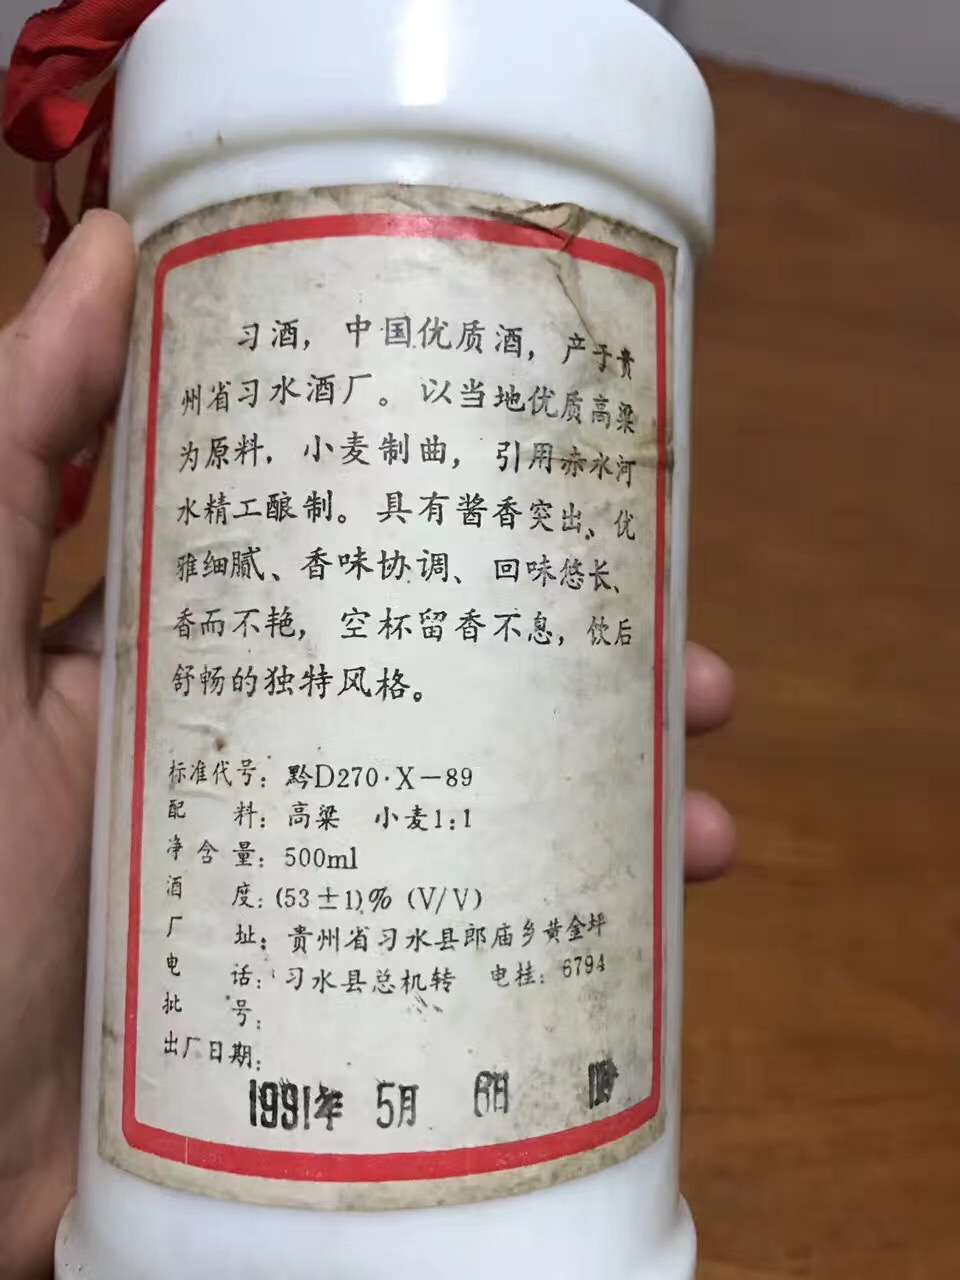 习酒，中国优质酒，产于贵
州省习水酒厂。以当地优质高粱
为原料，小麦制曲，引用赤水河
水精工酿制。具有酱香突出、优
雅细腻、香味协调、回味悠长、
香而不艳，空杯留香不息，饮后
舒畅的独特风格。
标准代号：黔D270·X－89
配料：高粱 小麦1:1
净含量：500ml
酒度：(53±1)% (V/V)
厂址：贵州省习水县郎庙乡黄金坪
电话：习水县总机转 电挂：6794
批号：
出厂日期：
1991年 5月 6日